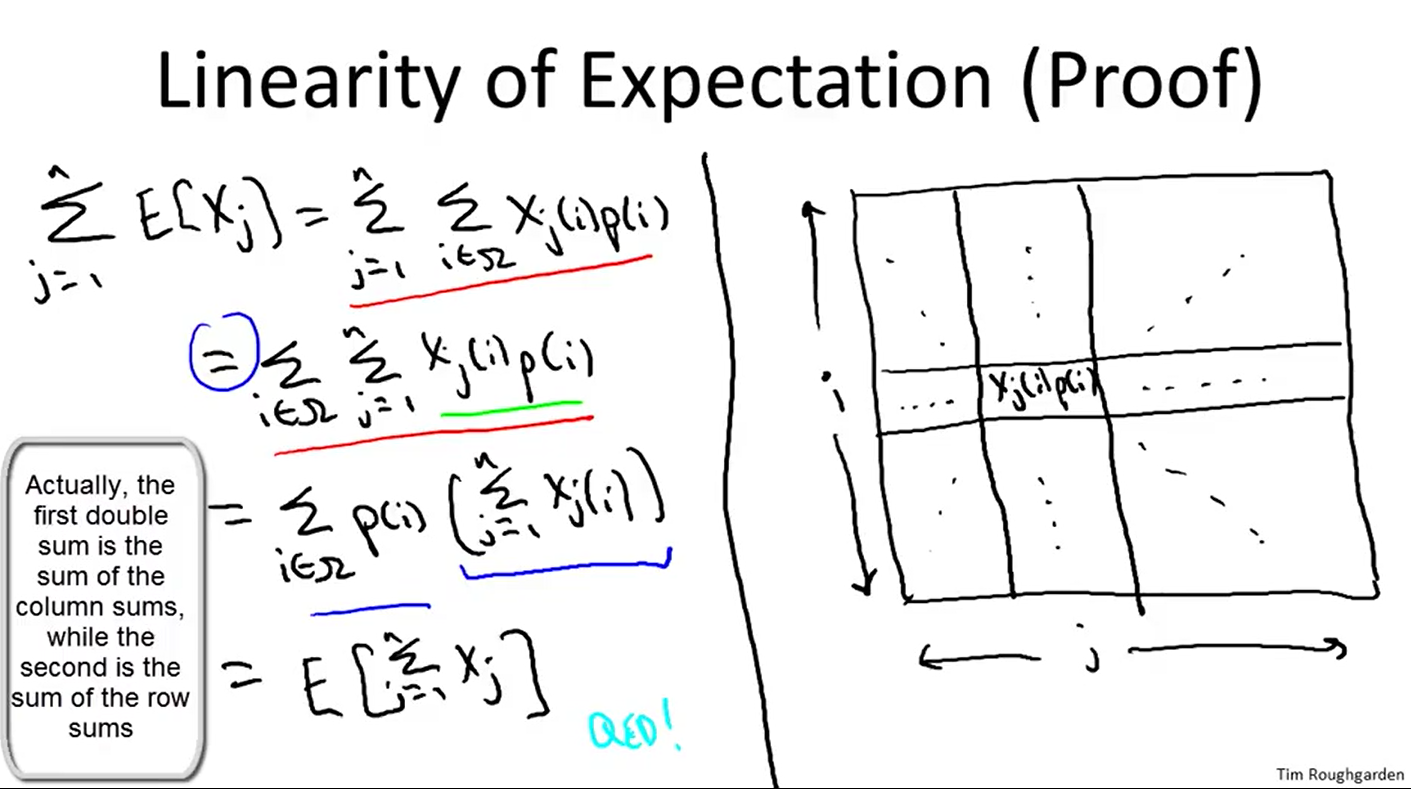 Linearity of Expectation (Proof)
n∑j=1 E[Xj] = n∑j=1 ∑i∈Ω Xj(i)p(i)
= ∑i∈Ω n∑j=1 Xj(i)p(i)
= ∑i∈Ω p(i) (n∑j=1 Xj(i))
= E[n∑j=1 Xj]
QED!
Actually, the
first double
sum is the
sum of the
column sums,
while the
second is the
sum of the row
sums
i
Xj(i)p(i)
j
Tim Roughgarden